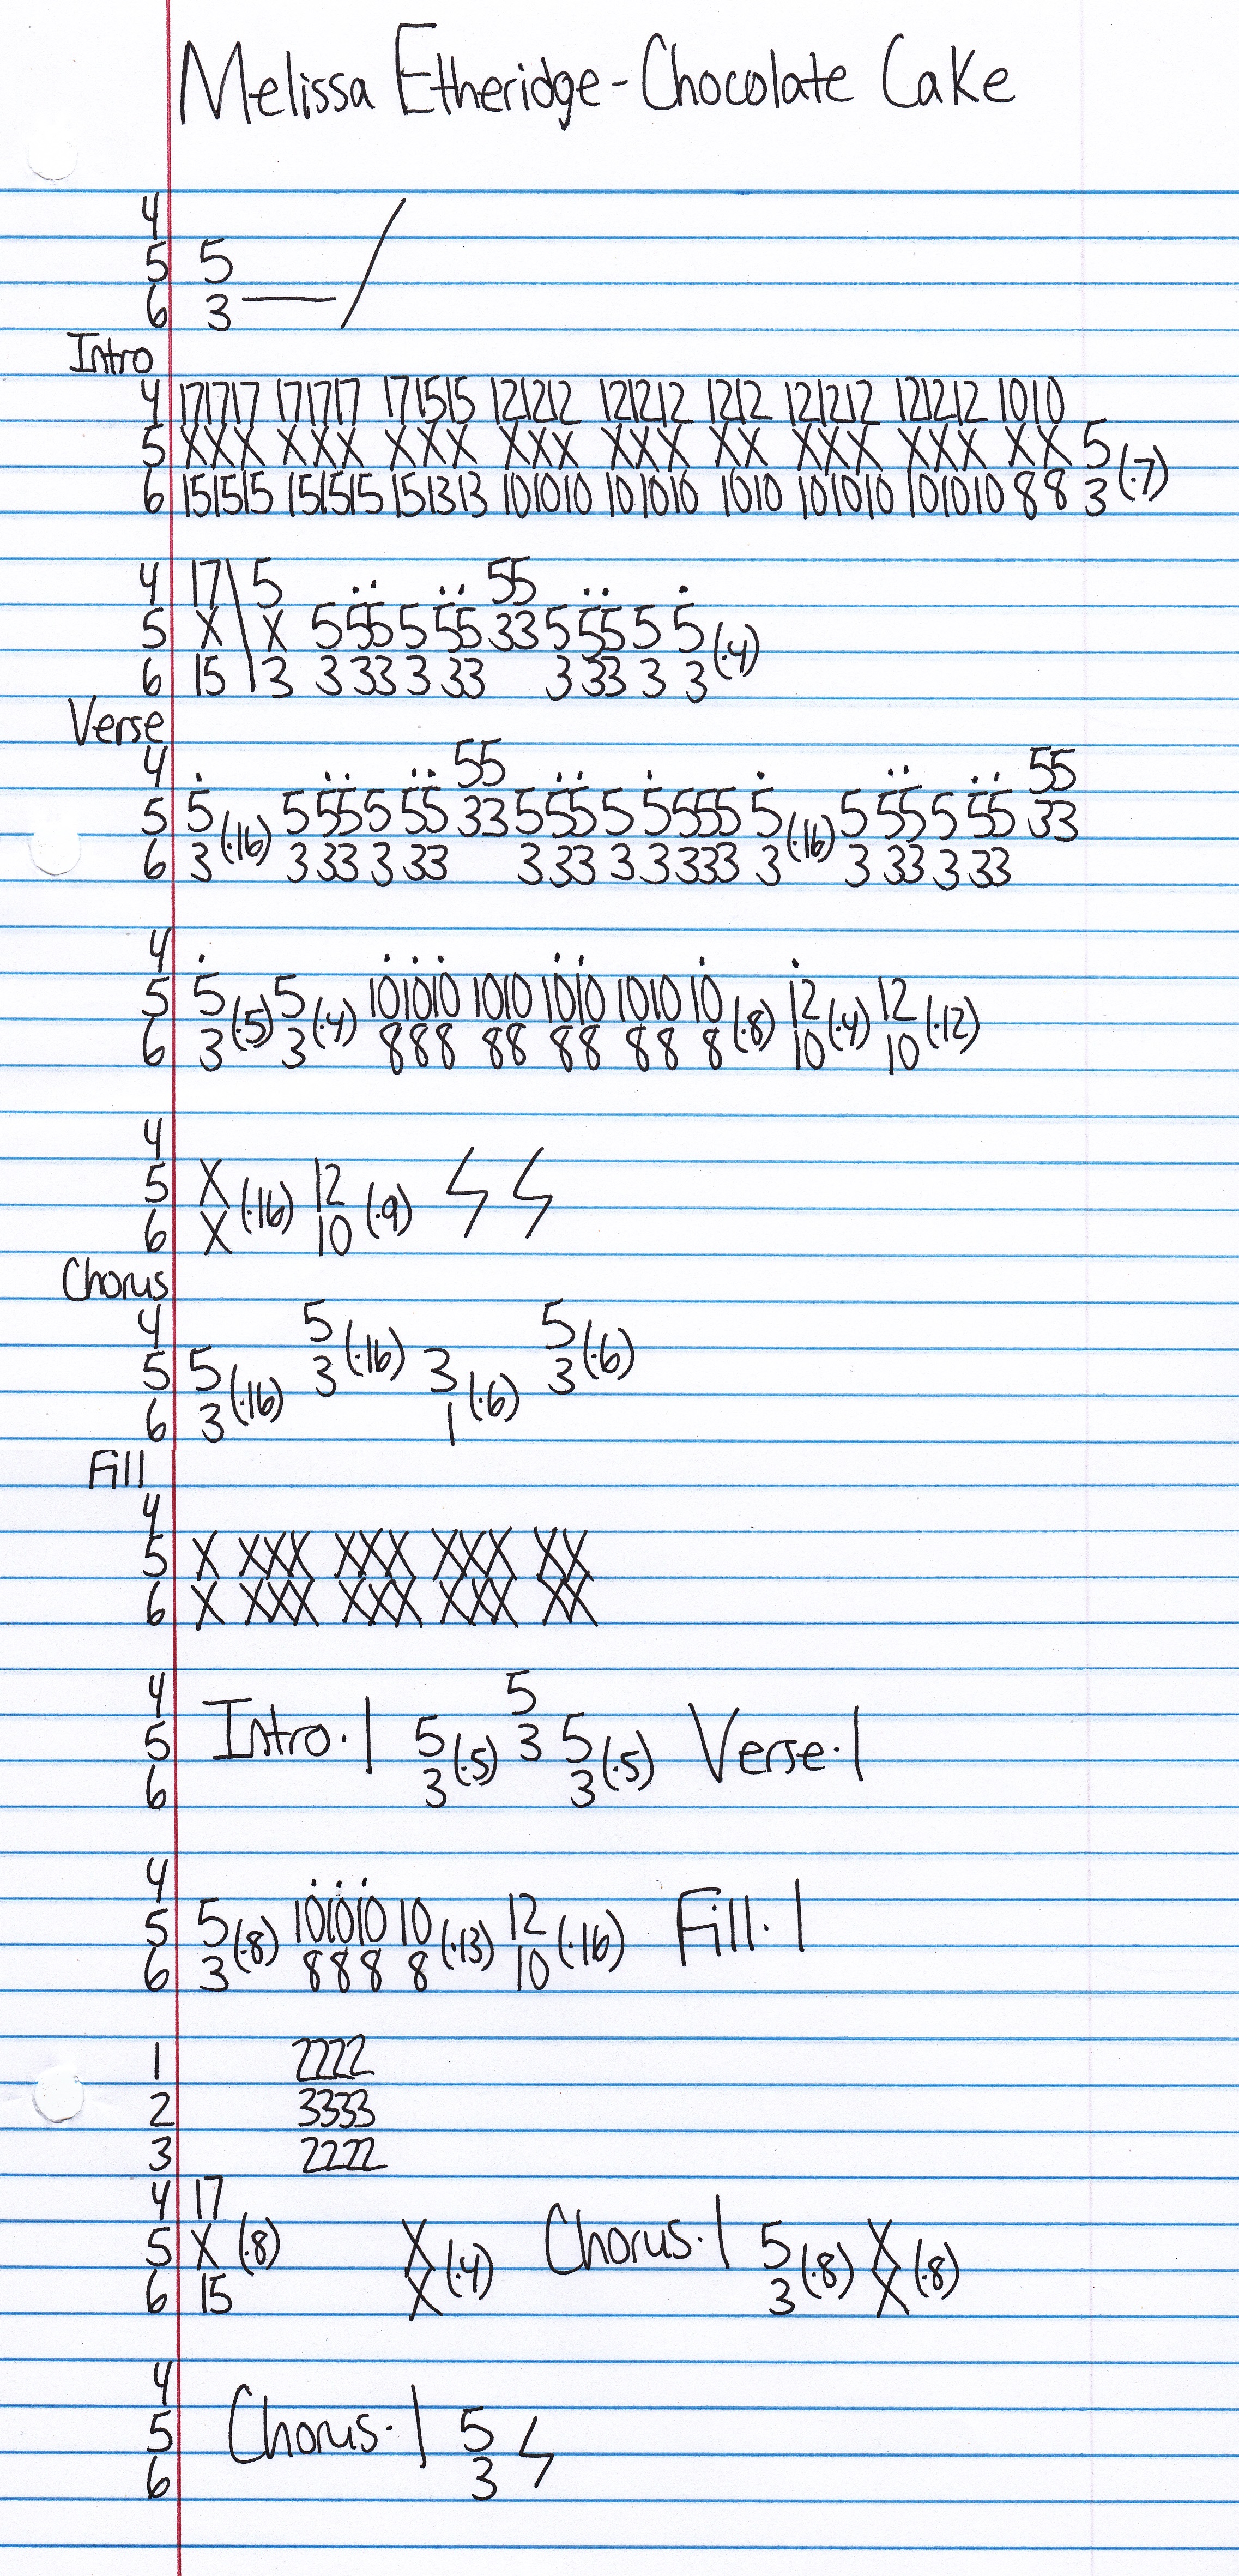 Melissa Etheridge - Chocolate Cake
4
5 5
6 3
Intro
4 171717 171717 171515 121212 121212 1212 121212 121212 1010
5 XXX XXX XXX XXX XXX XX XXX XXX XX 5
6 151515 151515 151313 101010 101010 1010 101010 101010 88 3 (·7)
4 17 \ 5 55
5 X X 5 55 5 55 33 5 55 5 5
6 15 3 3 33 3 33 3 33 3 3 (·4)
Verse
4 55 55
5 5 (·16) 5 55 5 55 33 5 55 5 5 555 5 (·16) 5 55 5 55 33
6 3 3 33 3 33 3 33 3 3 333 3 3 33 3 33
4
5 5 (·5) 5 (·4) 101010 1010 1010 1010 10 (·8) 12 (·4) 12 (·12)
6 3 3 888 88 88 88 8 10 10
4
5 X (·16) 12 (·9)
6 X 10
Chorus
4 5 (·16) 5 (·6)
5 5 (·16) 3 3 (·6) 3
6 3 1
Fill
4
5 X XXX XXX XXX XX
6 X XXX XXX XXX XX
4 5
5 Intro·1 5 (·5) 3 5 (·5) Verse·1
6 3 3
4
5 5 (·8) 101010 10 (·13) 12 (·16) Fill·1
6 3 888 8 10
1 2222
2 3333
3 2222
4 17
5 X (·8) X (·4) Chorus·1 5 (·8) X (·8)
6 15 X 3 X
4
5 Chorus·1 5
6 3